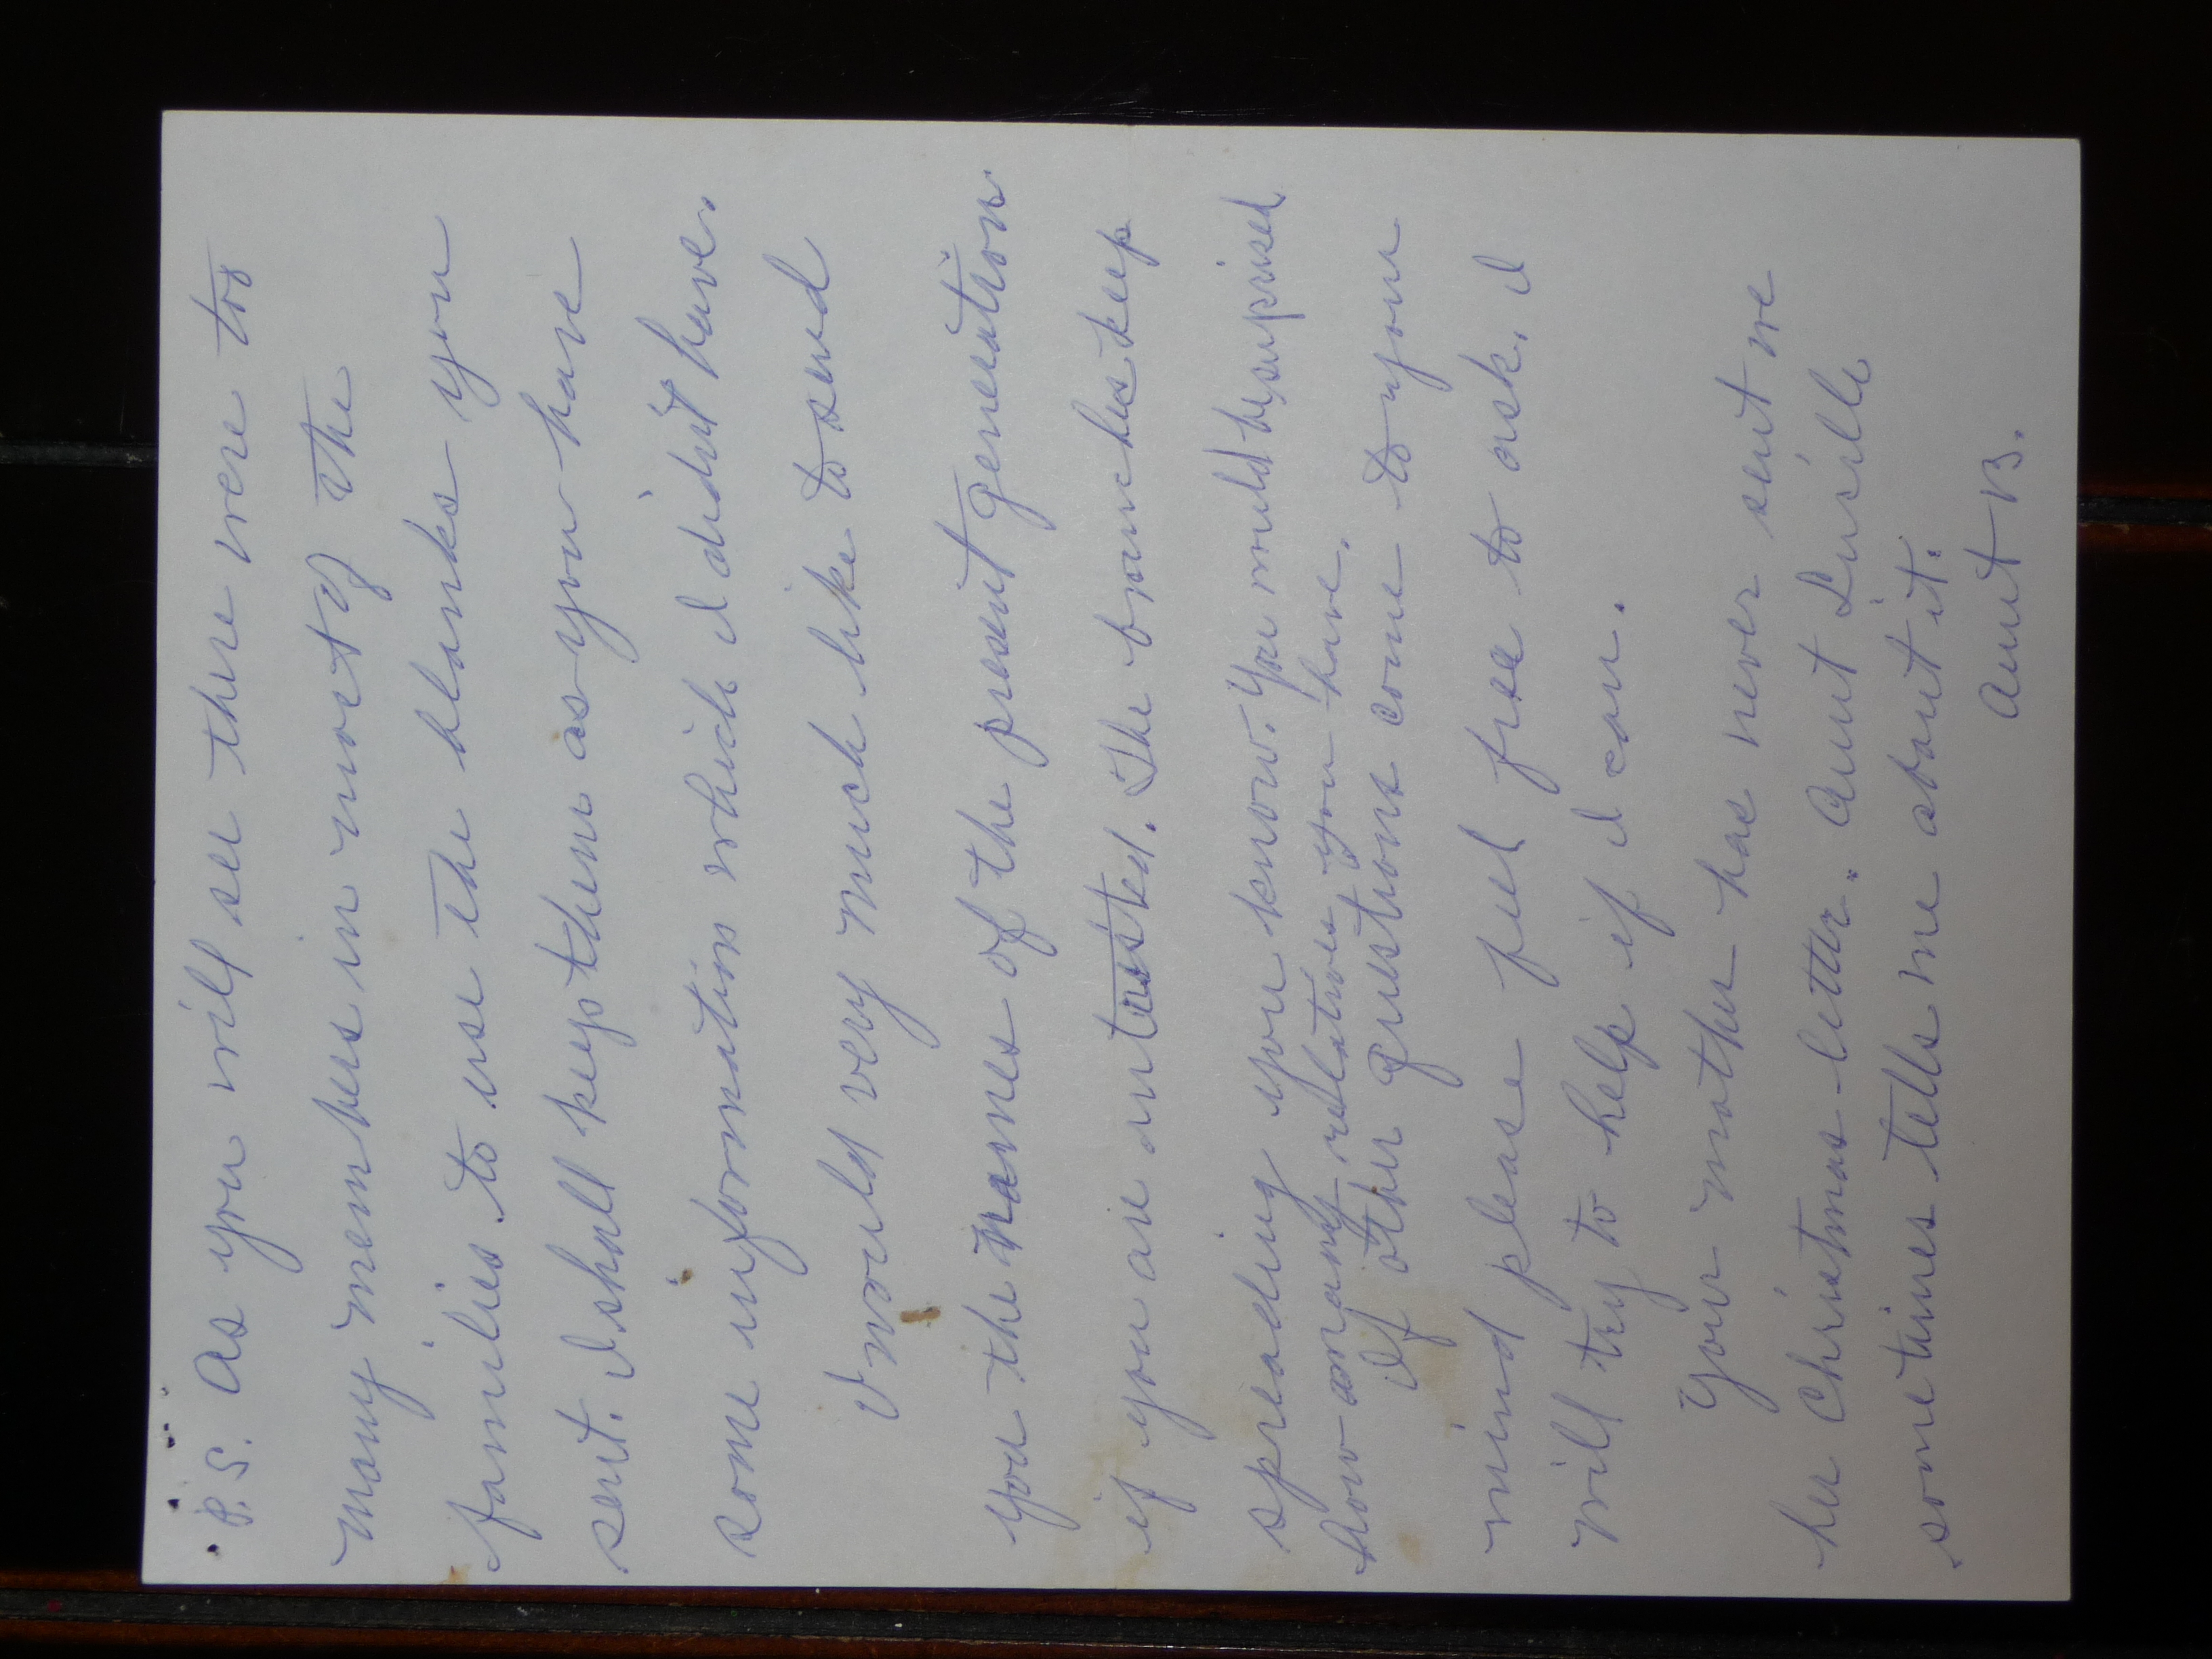 P.S. As you will see there were too
many members in most of the
families to use the blanks you
sent. I shall keep them as you have
some information which I didn't have.
I would very much like to send
you the names of the present generation
if you are intrested. The branches keep
spreading you know. You would be suprised
how many relatives you have.
If other questions come to your
mind please feel free to ask. I
will try to help if I can.
Your mother has never sent me
her Christmas letter. Aunt Lucille
sometimes tells me about it.
Aunt B.